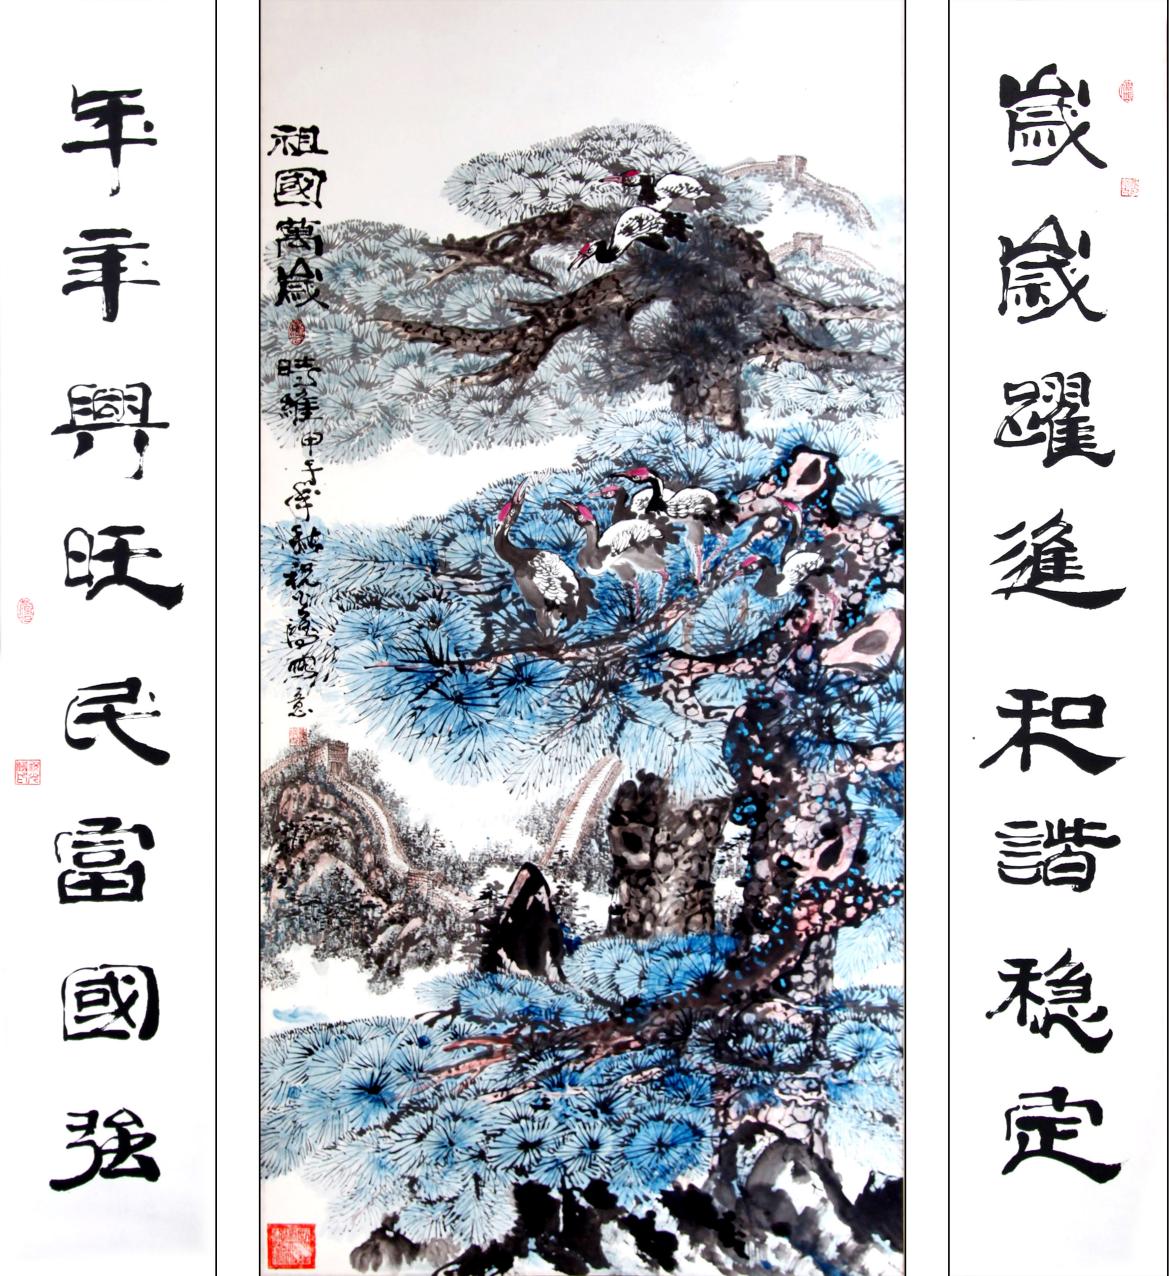 歲歲躍進和諧穩定
祖國萬歲
甲子年秋祝
意
年年興旺民富國強